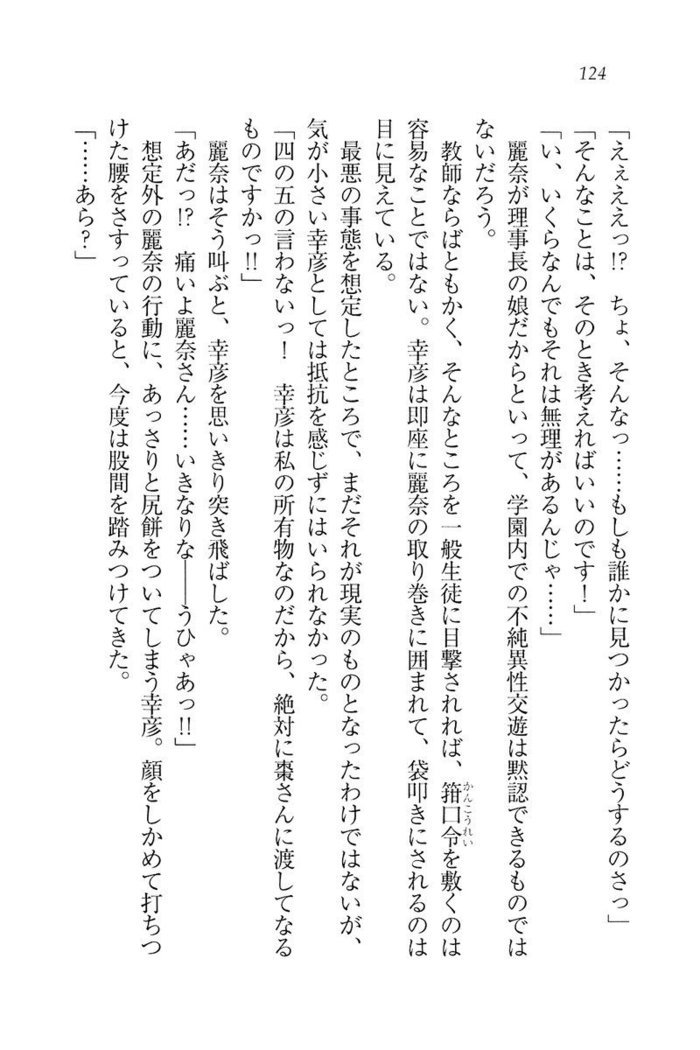 124
「えぇええっ!?　ちょ、そんなっ……もしも誰かに見つかったらどうするのさっ」
「そんなことは、そのとき考えればいいのです！」
「い、いくらなんでもそれは無理があるんじゃ……」
　麗奈が理事長の娘だからといって、学園内での不純異性交遊は黙認できるものでは
ないだろう。
　教師ならばともかく、そんなところを一般生徒に目撃されれば、箝口令を敷くのは
かんこうれい
容易なことではない。幸彦は即座に麗奈の取り巻きに囲まれて、袋叩きにされるのは
目に見えている。
　最悪の事態を想定したところで、まだそれが現実のものとなったわけではないが、
気が小さい幸彦としては抵抗を感じずにはいられなかった。
「四の五の言わないっ！　幸彦は私の所有物なのだから、絶対に棗さんに渡してなる
ものですかっ!!」
　麗奈はそう叫ぶと、幸彦を思いきり突き飛ばした。
「あだっ!?　痛いよ麗奈さん……いきなりな――うひゃあっ!!」
　想定外の麗奈の行動に、あっさりと尻餅をついてしまう幸彦。顔をしかめて打ちつ
けた腰をさすっていると、今度は股間を踏みつけてきた。
「……あら？」